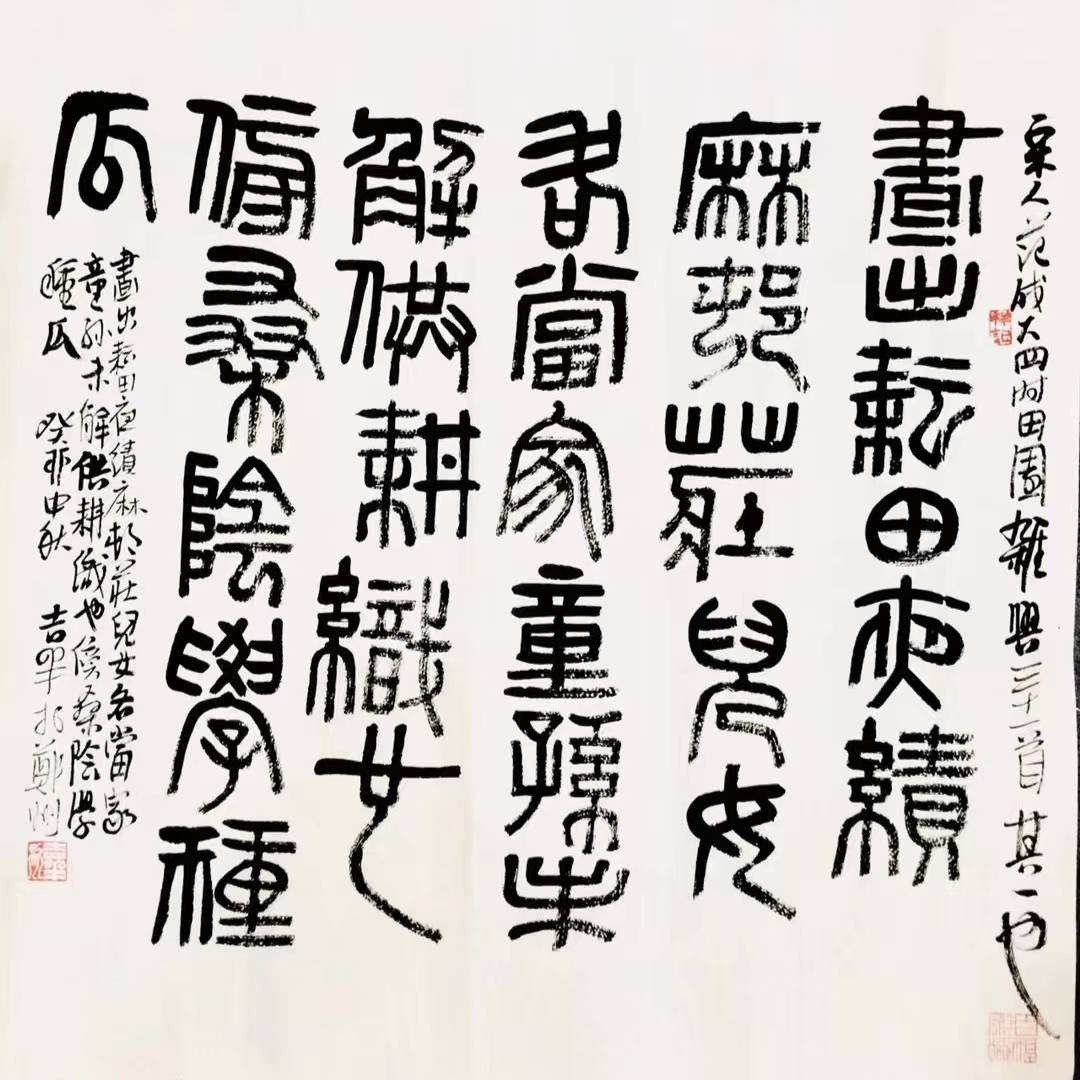 宋人范成大四时田園雜興三十一首其一也
晝出耘田夜績
麻邨莊兒女
各當家童孫未
解供耕織也
傍桑陰學種
瓜
晝出耘田夜績麻村莊兒女各當家
童孫未解供耕織也傍桑陰學
種瓜 癸卯中秋 吉平於鄭州